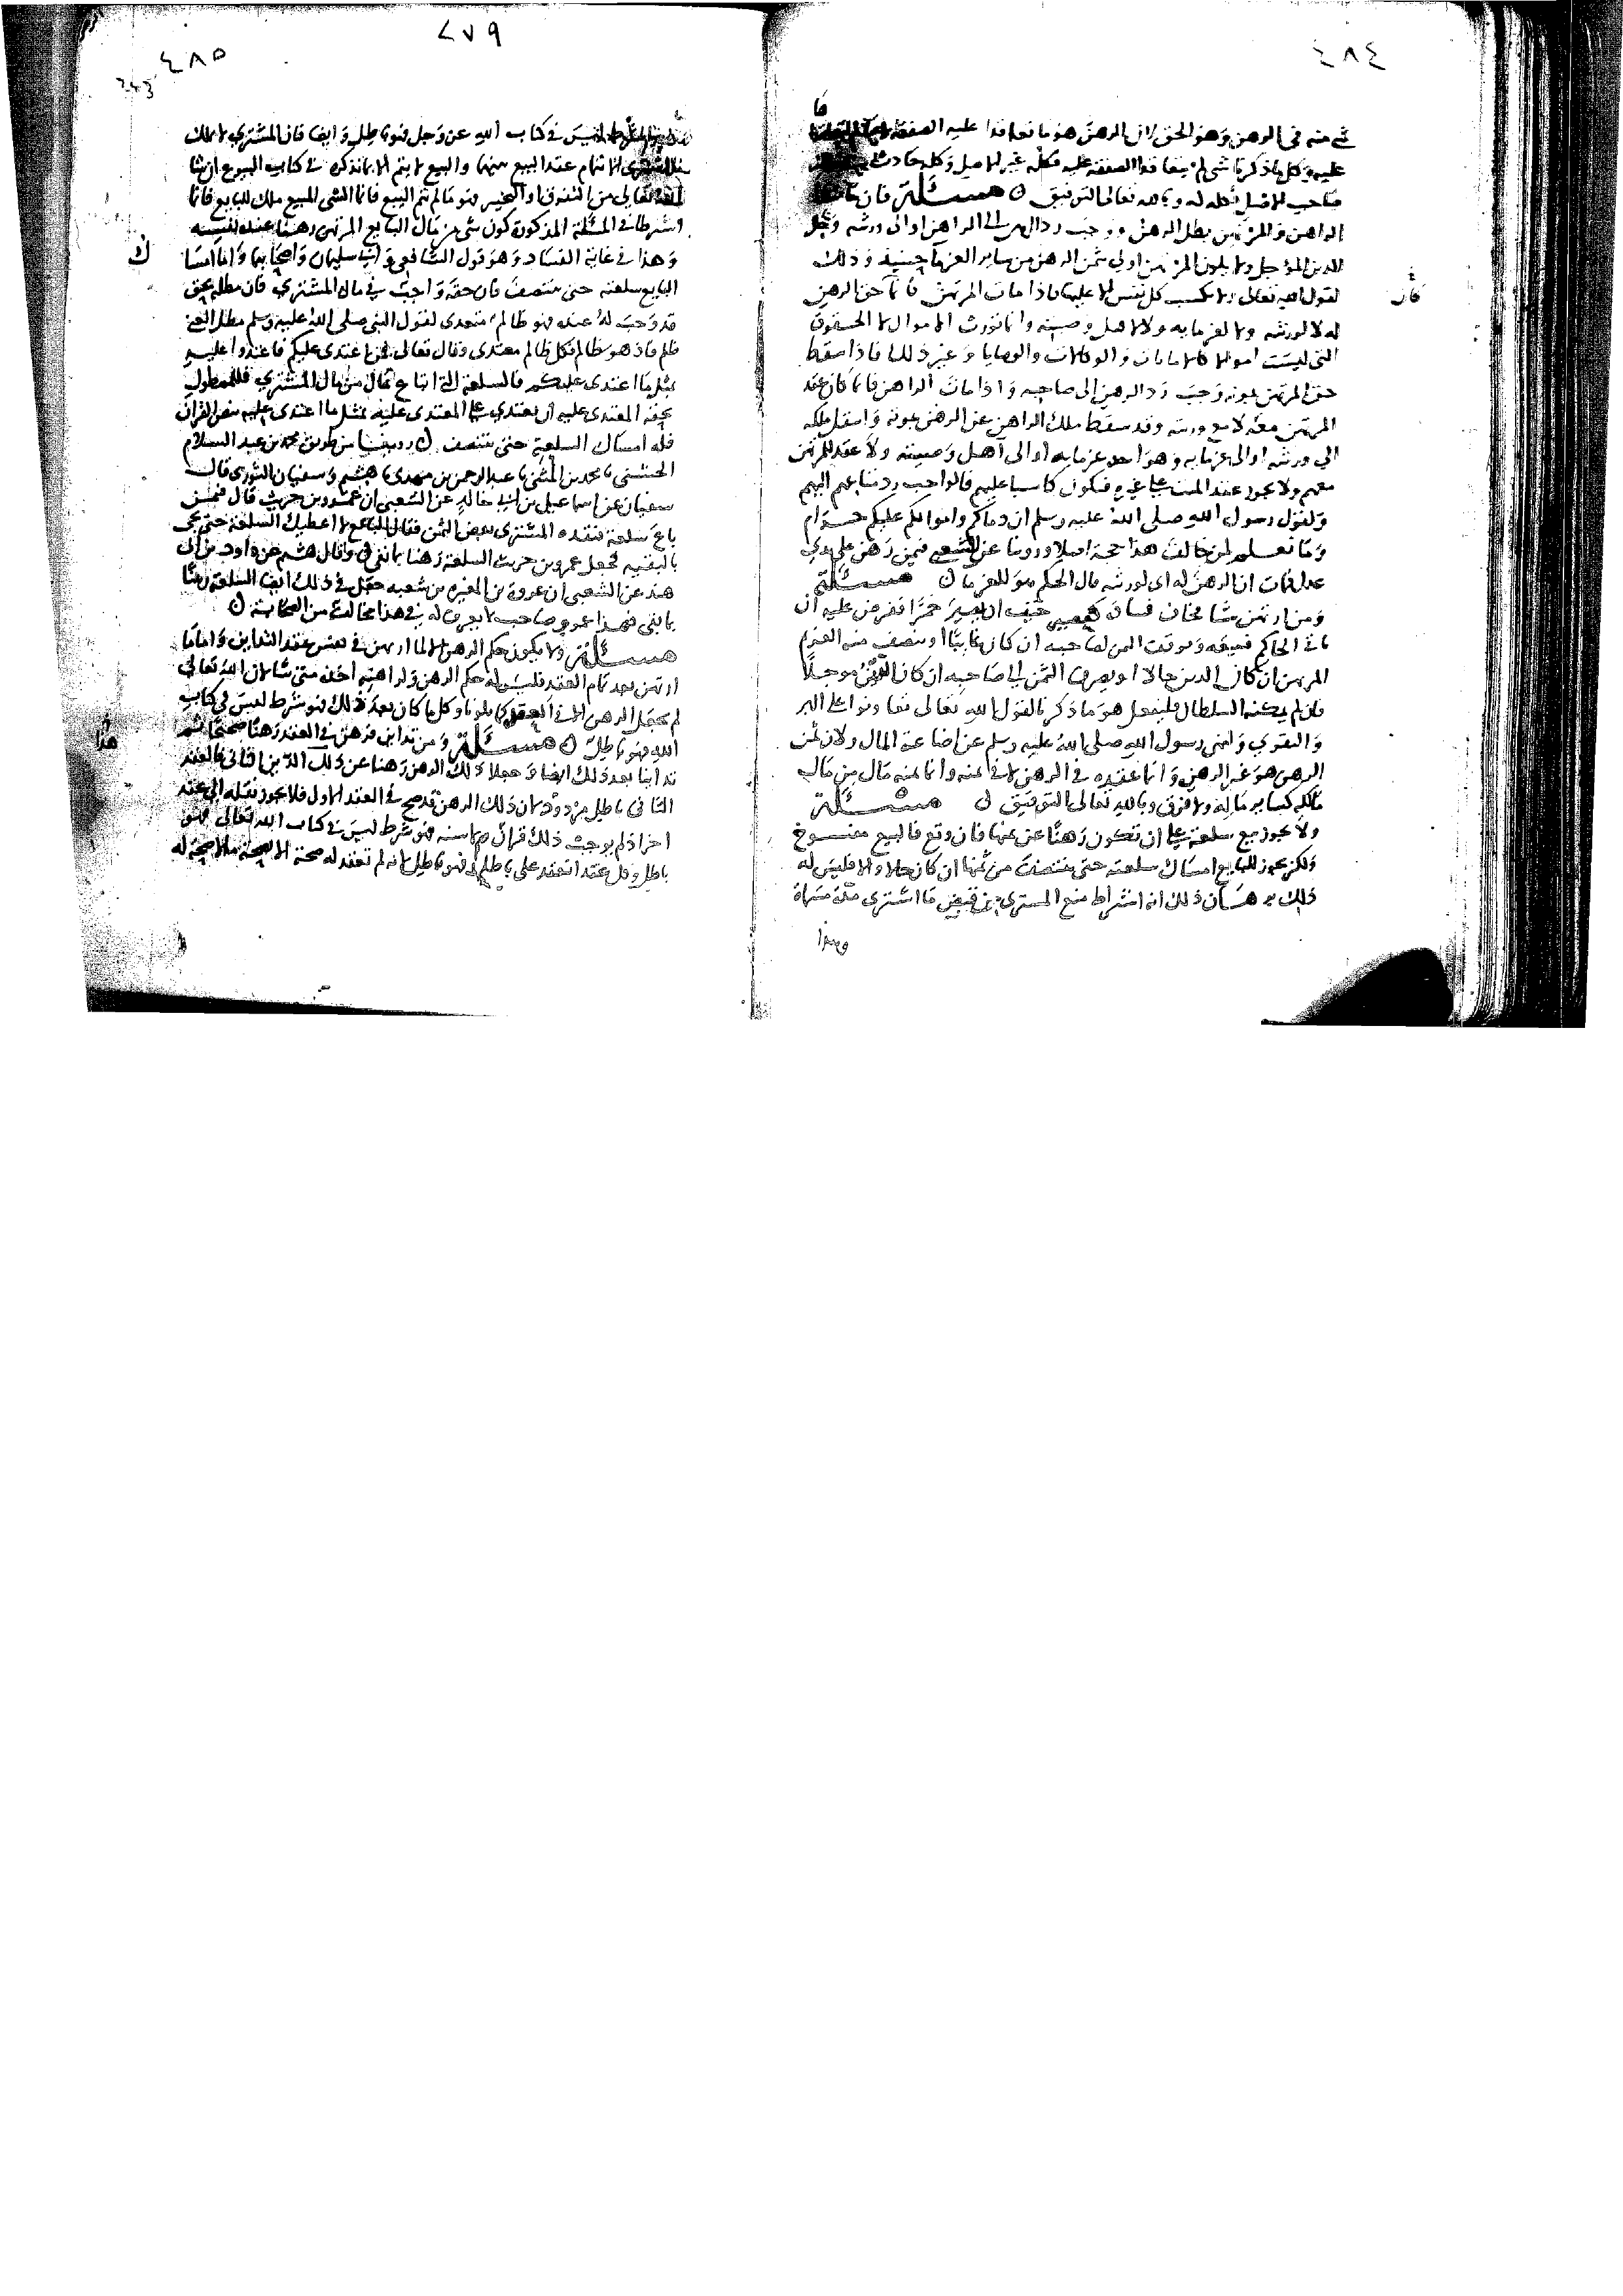 ٤٨٤
شي منه في الرهن وهو الحق لان الرهن هو ما تعاقدا عليه الصفقة
عليه وكل ما ذكرنا شي لم يتعاقدا الصفقة عليه فكله غير الاصل وكله حادث
صاحب الاصل فكله له وبالله تعالى التوفيق ن مسئلة فان مات
الراهن او المرتهن بطل الرهن ووجب رد الرهن الى الراهن او الى ورثته وحل
الدين المؤجل ولا يكون المرتهن اولى بثمن الرهن من ساير الغرما حينيذ وذلك
لقول الله تعالى ولا تكسب كل نفس الا عليها فاذا مات المرتهن فانما حق الرهن
فان
له لا لورثته ولا لغرمايه ولا لاهل وصيته وانما تورث الاموال لا الحقوق
التي ليست اموالا كالامانات والوكالات والوصايا وغير ذلك فاذا سقط
حق المرتهن بموته وجب رد الرهن الى صاحبه واذا مات الراهن فانما كان عقد
المرتهن معه لا مع ورثته وقد سقط ملك الراهن عن الرهن بموته وانتقل ملكه
الى ورثته او الى غرمايه وهو احد غرمايه او الى اهل وصيته ولا عقد للمرتهن
معهم ولا يجوز عقد الميت على غيره فيكون كاسبا عليهم فالواجب رد متاعهم اليهم
ولقول رسول الله صلى الله عليه وسلم ان دماكم واموالكم عليكم حرام
وما نعلم لمن خالف هذا حجة اصلا وروينا عن الشعبي فيمن رهن على يدي
عدل فمات ان الرهن له اي لورثته قال الحكم هو للغرما ن مسئلة
ومن ارتهن شيا فخاف فساده كعصير خيف ان يصير خمرا ففرض عليه ان
ياتي الحاكم فيبيعه ويوقف الثمن لصاحبه ان كان غايبا او ينصف منه الغريم
المرتهن ان كان الدين حالا او يصرف الثمن الى صاحبه ان كان الدين موجلا
فان لم يمكنه السلطان فليفعل هو ما ذكرنا لقول الله تعالى تعاونوا على البر
والتقوى ونهى رسول الله صلى الله عليه وسلم عن اضاعة المال ولان ثمن
الرهن هو غير الرهن وانما عقده في الرهن لا في ثمنه وانما ثمنه مال من مال
مالكه كساير ماله ولا فرق وبالله تعالى التوفيق ن مسئلة
ولا يجوز بيع سلعة على ان تكون رهنا عن ثمنها فان وقع فالبيع مفسوخ
ولكن يجوز للبايع امساك سلعته حتى ينتصف من ثمنها ان كان حالا والا فليس له
ذلك برهان ذلك انه اشتراط منع المشتري من قبض ما اشترى مدة مسماة
٢٧٩
٤٨٥
243
ليس في كتاب الله عز وجل فهو باطل وايضا فان المشتري لا يملك
الا بتمام عقد البيع بينهما والبيع لا يتم الا بما نذكره في كتاب البيوع ان شا
الله تعالى من التفرق او التخيير فهو ما لم يتم البيع فانما الشي المبيع ملك للبايع فانما
اشترطا في المسئلة المذكورة كون شي من مال البايع المرتهن رهنا عنده لنفسه
وهذا في غاية الفساد وهو قول الشافعي وابي سليمان واصحابهما واما امساك
البايع سلعته حتى ينتصف فان حقه واجب في مال المشتري فان مطله بحق
قد وجب له عنده فهو ظالم متعدي لقول النبي صلى الله عليه وسلم مطل الغني
ظلم فاذ هو ظالم فكل ظالم معتدي وقال تعالى فمن اعتدى عليكم فاعتدوا عليه
بمثل ما اعتدى عليكم فالسلعة التي ابتاع مال من مال المشتري فللممطول
بحقه المعتدى عليه ان يعتدي على المعتدي عليه بمثل ما اعتدى عليه بنص القران
فله امساك السلعة حتى ينتصف ن روينا من طريق محمد بن عبد السلام
الخشني نا محمد بن المثنى نا عبد الرحمن بن مهدي نا هشيم وسفيان الثوري قال
سفيان عن اسماعيل بن ابي خالد عن الشعبي ان عمرو بن حريث قال فيمن
باع سلعة فنقده المشتري بعض الثمن فقال البايع لا اعطيك السلعة حتى تجي
بالبقية فجعل عمرو بن حريث السلعة رهنا بما بقي وقال هشيم عن داود بن ابي
هند عن الشعبي ان عروة بن المغيرة بن شعبه جعل في ذلك ايضا السلعة رهنا
بما بقي فهذا عروة صاحب لا يعرف له في هذا مخالف من الصحابة ن
مسئلة ولا يكون حكم الرهن الا لما ارتهن في نفس عقد التداين واما ما
ارتهن بعد تمام العقد فليس له حكم الرهن ولراهنه اخذه متى شا لان الله تعالى
لم يجعل الرهن الا في العقد كما تلونا وكل ما كان بعد ذلك فهو شرط ليس في كتاب
الله فهو باطل ن مسئلة ومن تداين فرهن في العقد رهنا صحيحا ثم
تداينا بعد ذلك ايضا وجعلا ذلك الرهن رهنا عن ذلك الدين الثاني فالعقد
الثاني باطل مردود لان ذلك الرهن قد صح في العقد الاول فلا يجوز نقله الى عقد
اخر اذ لم يوجب ذلك قران ولا سنه فهو شرط ليس في كتاب الله تعالى فهو
باطل وكل عقد انعقد على باطل فهو باطل لانه لم تعقد له صحة الا بصحة ما لا صحة له